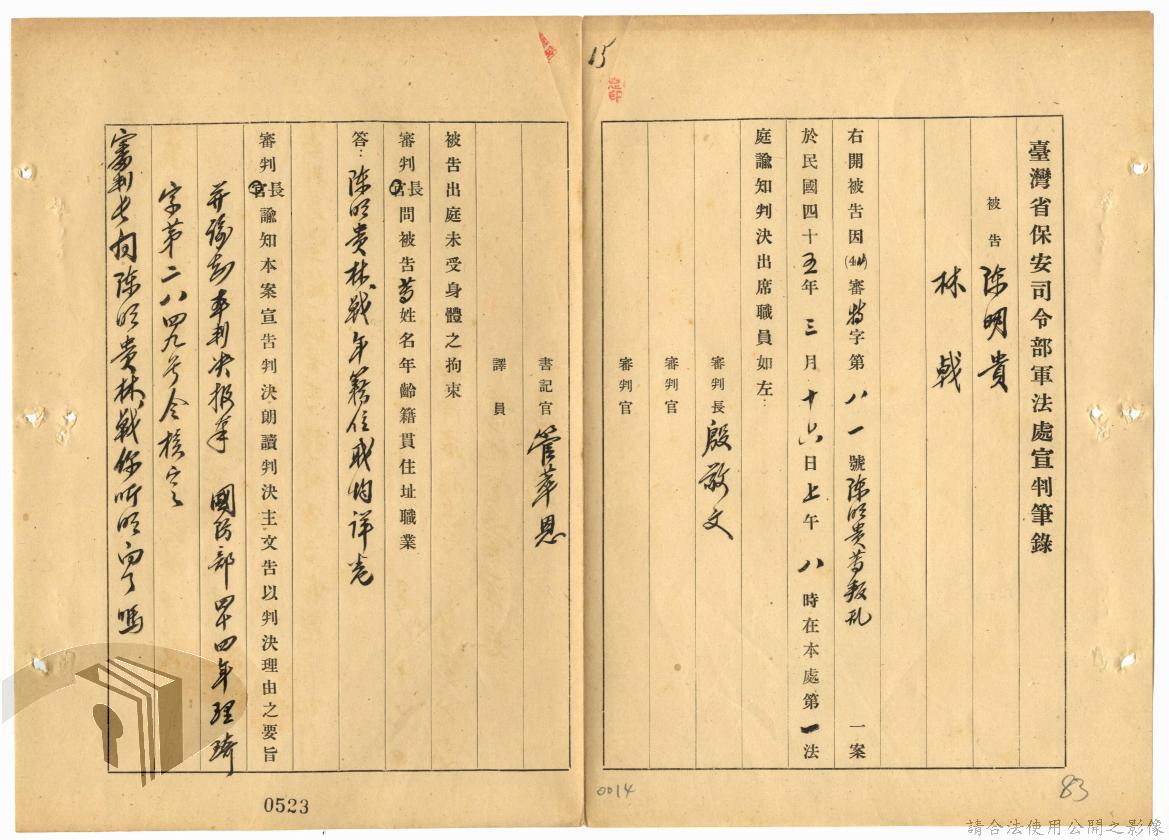 15
臺灣省保安司令部軍法處宣判筆錄
被告 陳明貴
林戟
右開被告因(44)審特字第八一號陳明貴等叛乱一案
於民國四十五年三月十六日上午八時在本處第一法
庭諭知判決出席職員如左：
審判長 殷敬文
審判官
審判官
書記官 管萃恩
譯員
被告出庭未受身體之拘束
審判長官問被告等姓名年齡籍貫住址職業
答：陳明貴林戟年籍住戝均詳卷
審判長官諭知本案宣告判決朗讀判決主文告以判決理由之要旨
并諭知本判决报奉 國防部四十四年理琦
字第二八四九号令核定
審判長問陳明貴林戟你听明白了嗎
0523
0014
83
請合法使用公開之影像